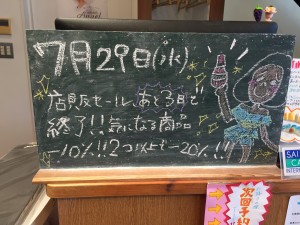 7月29日(水)
店販セール あと3日で
終了!! 気になる商品
-10%!! 2つ以上で -20%!!!
次回予約
SAI
CA
INTER